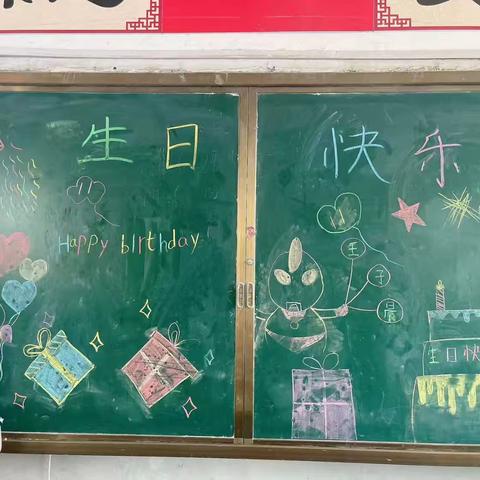 生日快乐
Happy birthday
王
子
晨
生日快